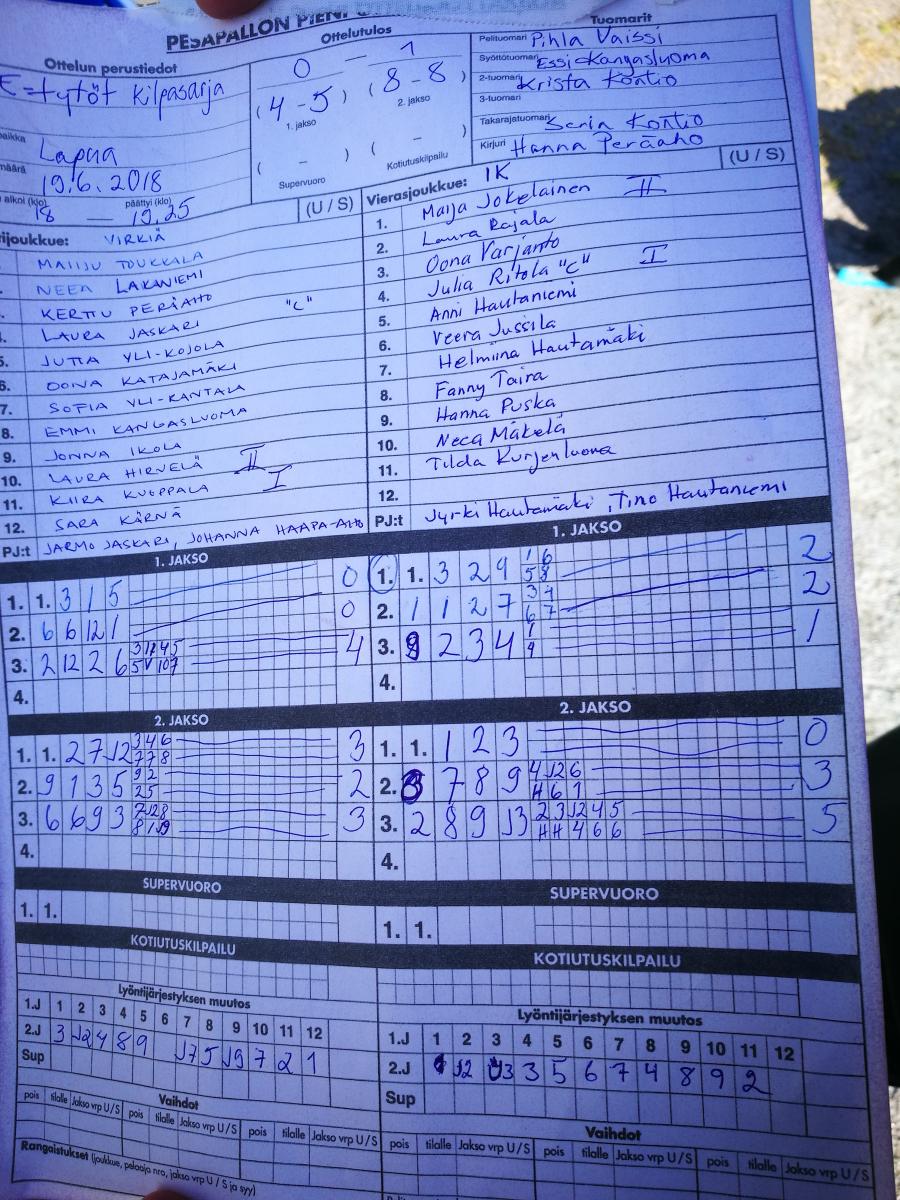 PESÄPALLON PIENI
Ottelun perustiedot
E-tytöt kilpasarja
Lapua
19.6.2018
alkoi (klo) päättyi (klo)
18 — 19.25
Ottelutulos
0 — 1
(4 - 5) (8 - 8)
1. jakso 2. jakso
( - ) ( - )
Supervuoro Kotiutuskilpailu
Tuomarit
Pelituomari Pihla Vaissi
Syöttötuomari Essi Kangasluoma
2-tuomari Krista Kontio
3-tuomari
Takarajatuomari Senia Kontio
Kirjuri Hanna Peräaho
joukkue: VIRKIÄ (U / S)
MAIJU TOUKKALA
NEEA LAKANIEMI
KERTTU PERÄAHO
LAURA JASKARI "C"
5. JUTTA YLI-KOJOLA
6. OONA KATAJAMÄKI
7. SOFIA YLI-KANTALA
8. EMMI KANGASLUOMA
9. JONNA IKOLA
10. LAURA HIRVELÄ II
11. KIIRA KUOPPALA I
12. SARA KÄRNÄ
PJ:t JARMO JASKARI, JOHANNA HAAPA-AHO
Vierasjoukkue: IK (U / S)
1. Maija Jokelainen II
2. Laura Rajala
3. Oona Varjanto
4. Julia Ritola "C" I
5. Anni Hautaniemi
6. Veera Jussila
7. Helmiina Hautamäki
8. Fanny Taira
9. Hanna Puska
10. Neea Mäkelä
11. Tilda Kurjenluoma
12.
PJ:t Jyrki Hautamäki, Tino Hautaniemi
1. JAKSO
1. 1. 3 1 5 0
2. 6 6 12 1 0
3. 2 12 2 6 4
4.
1. JAKSO
1. 1. 3 2 9 2
2. 1 1 2 7 2
3. 9 2 3 4 1
4.
2. JAKSO
1. 1. 2 7 J2 3
2. 9 1 3 5 2
3. 6 6 9 3 3
4.
2. JAKSO
1. 1. 1 2 3 0
2. 7 8 9 3
3. 2 8 9 J3 5
4.
SUPERVUORO
1. 1.
SUPERVUORO
1. 1.
KOTIUTUSKILPAILU
KOTIUTUSKILPAILU
Lyöntijärjestyksen muutos
1.J 1 2 3 4 5 6 7 8 9 10 11 12
2.J 3 J2 4 8 9 J7 5 J9 7 2 1
Sup
Lyöntijärjestyksen muutos
1.J 1 2 3 4 5 6 7 8 9 10 11 12
2.J J2 J3 3 5 6 7 4 8 9 2
Sup
Vaihdot
pois tilalle Jakso vrp U/S pois tilalle Jakso vrp U/S pois tilalle Jakso vrp U/S
Rangaistukset (joukkue, pelaaja nro, jakso vrp U / S ja syy)
Vaihdot
pois tilalle Jakso vrp U/S pois tilalle Jakso vrp U/S pois tilalle Jakso vrp U/S